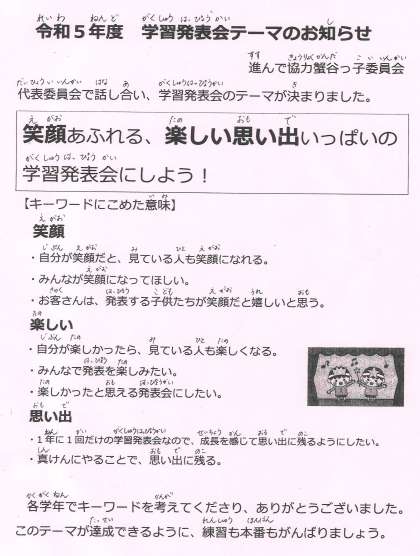 令和５年度　学習発表会テーマのお知らせ
進んで協力蟹谷っ子委員会
代表委員会で話し合い、学習発表会のテーマが決まりました。
笑顔あふれる、楽しい思い出いっぱいの
学習発表会にしよう！
【キーワードにこめた意味】
笑顔
・自分が笑顔だと、見ている人も笑顔になれる。
・みんなが笑顔になってほしい。
・お客さんは、発表する子供たちが笑顔だと嬉しいと思う。
楽しい
・自分が楽しかったら、見ている人も楽しくなる。
・みんなで発表を楽しみたい。
・楽しかったと思える発表会にしたい。
思い出
・１年に１回だけの学習発表会なので、成長を感じて思い出に残るようにしたい。
・真けんにやることで、思い出に残る。
各学年でキーワードを考えてくださり、ありがとうございました。
このテーマが達成できるように、練習も本番もがんばりましょう。